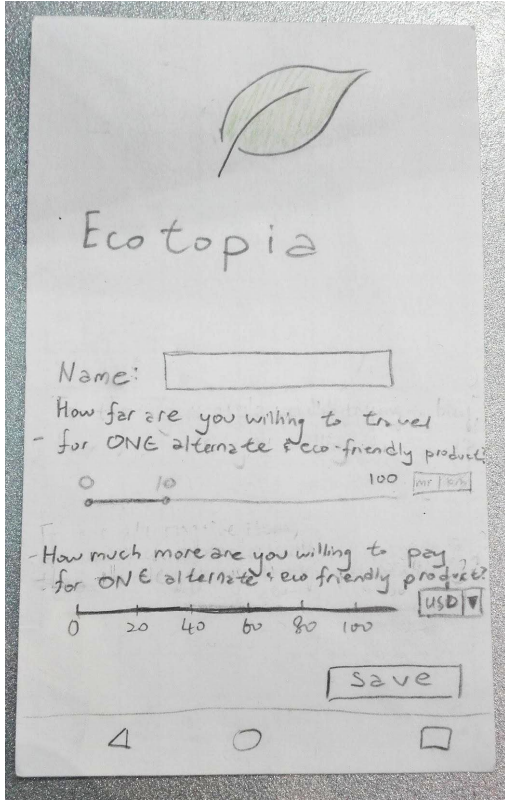 Ecotopia
Name:
How far are you willing to travel
- for ONE alternate & eco-friendly product?
0 10 100
- How much more are you willing to pay
- for ONE alternate & eco friendly product?
USD
0 20 40 60 80 100
Save